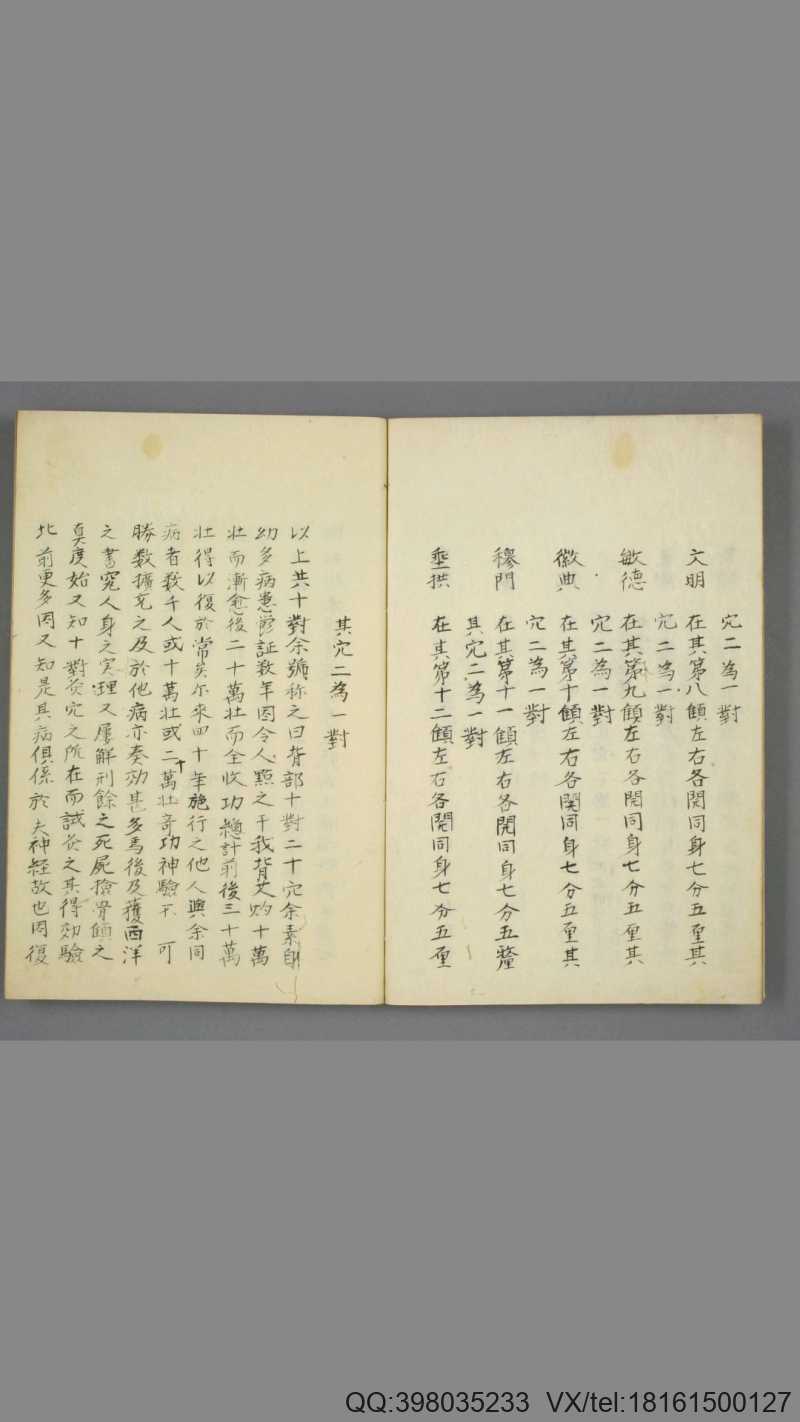 穴二為一對
文明 在其第八顀左右各開同身七分五厘其
穴二為一對
敏德 在其第九顀左右各開同身七分五厘其
穴二為一對
徽典 在其第十顀左右各開同身七分五厘其
穴二為一對
穆門 在其第十一顀左右各開同身七分五釐
其穴二為一對
垂拱 在其第十二顀左右各開同身七分五厘
其穴二為一對
以上共十對余號称之曰背部十對二十穴余素自
幼多病患証数年因令人點之于我背艾灼十萬
壮而漸愈後二十萬壮而全收功總計前後三十萬
壮得以復於常矣尓来四十年施行之他人與余同
病者数千人或十萬壮或二十萬壮奇功神驗不可
勝数擴充之及於他病亦奏効甚多焉後及獲西洋
之書究人身之実理又屢解刑餘之死屍撿骨顀之
真度始又知十對灸穴之所在而試灸之其得効驗
比前更多因又知是其病俱係於夫神経故也因復
QQ:398035233 VX/tel:18161500127